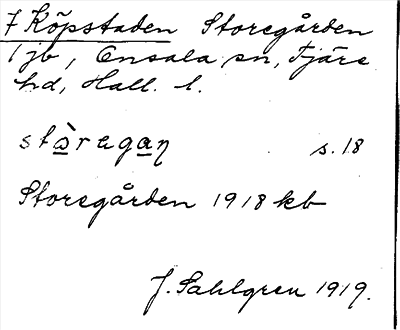 7 Köpstaden Storegården
1 jb, Onsala sn, Fjäre
hd, Hall. l.
stòragaŋ s. 18
Storegården 1918 kb
J. Sahlgren 1919.